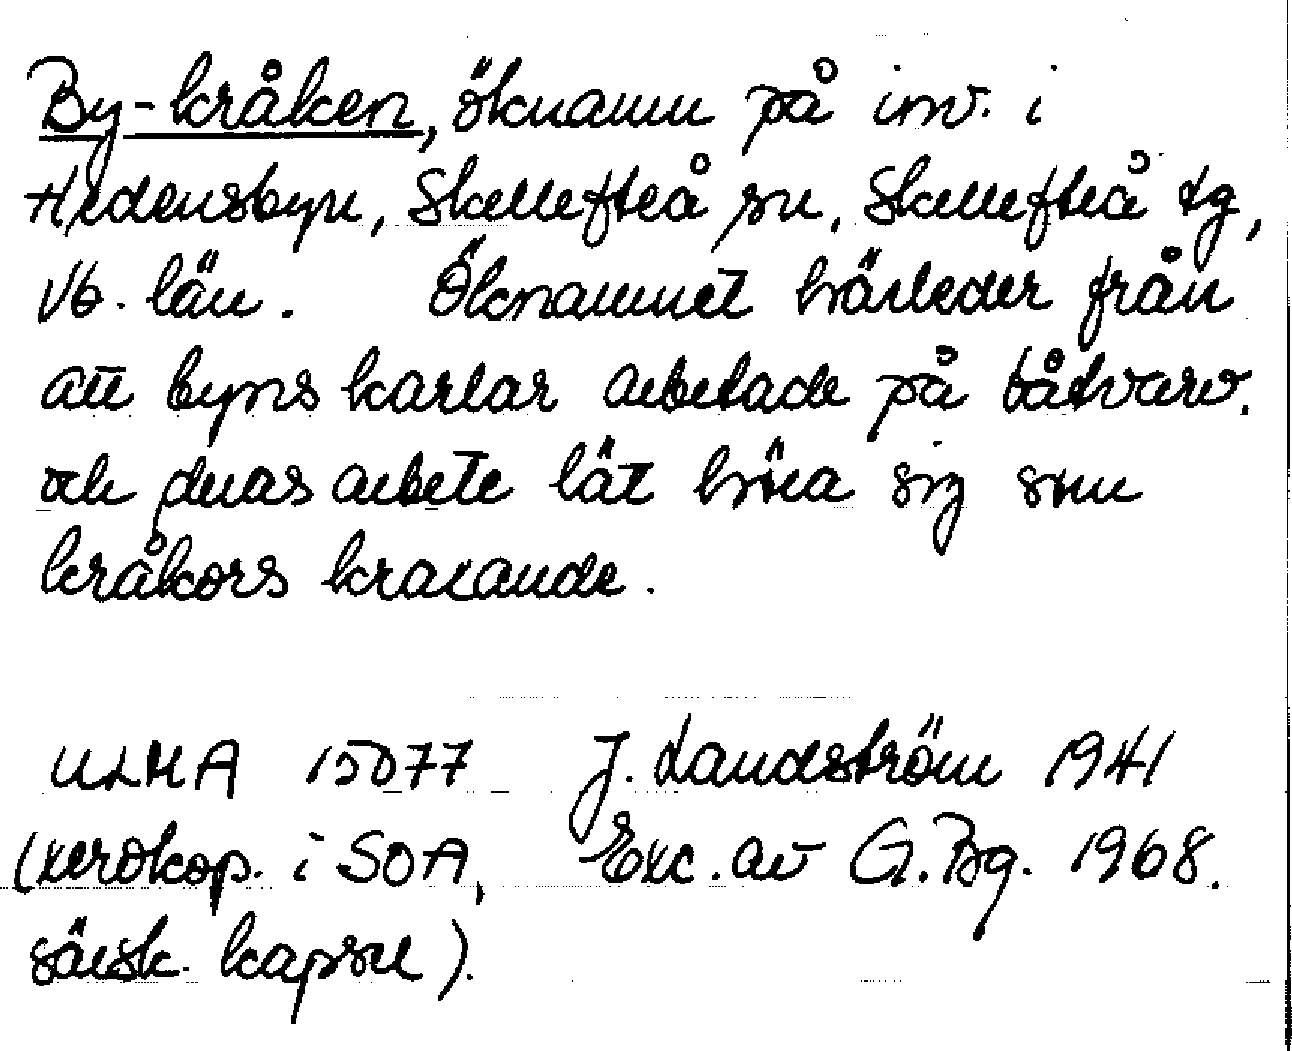 By-kråken, öknamn på inv. i
Hedensbyn, Skellefteå sn, Skellefteå tg,
Vb. län. Öknamnet härleder från
att byns karlar arbetade på båtvarv.
och deras arbete lät höra sig som
kråkors kraxande.
ULMA 15077 J. Landström 1941
(xerokop. i SOA, Exc. av G. Bg. 1968.
särsk. kapsel).